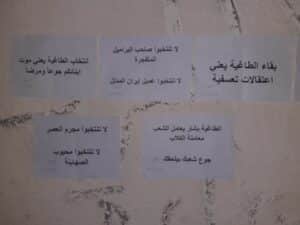 بقاء الطاغية يعني
اعتقالات تعسفية
لا تنتخبوا صاحب البراميل
المتفجرة
لا تنتخبوا عميل ايران المذلل
انتخاب الطاغية يعني موت
ابنائكم جوعا ومرضا
الطاغية بشار يعامل الشعب
معاملة الكلاب
جوع شعبك بيلحقك
لا تنتخبوا مجرم العصر
لا تنتخبوا محبوب
الصهاينة